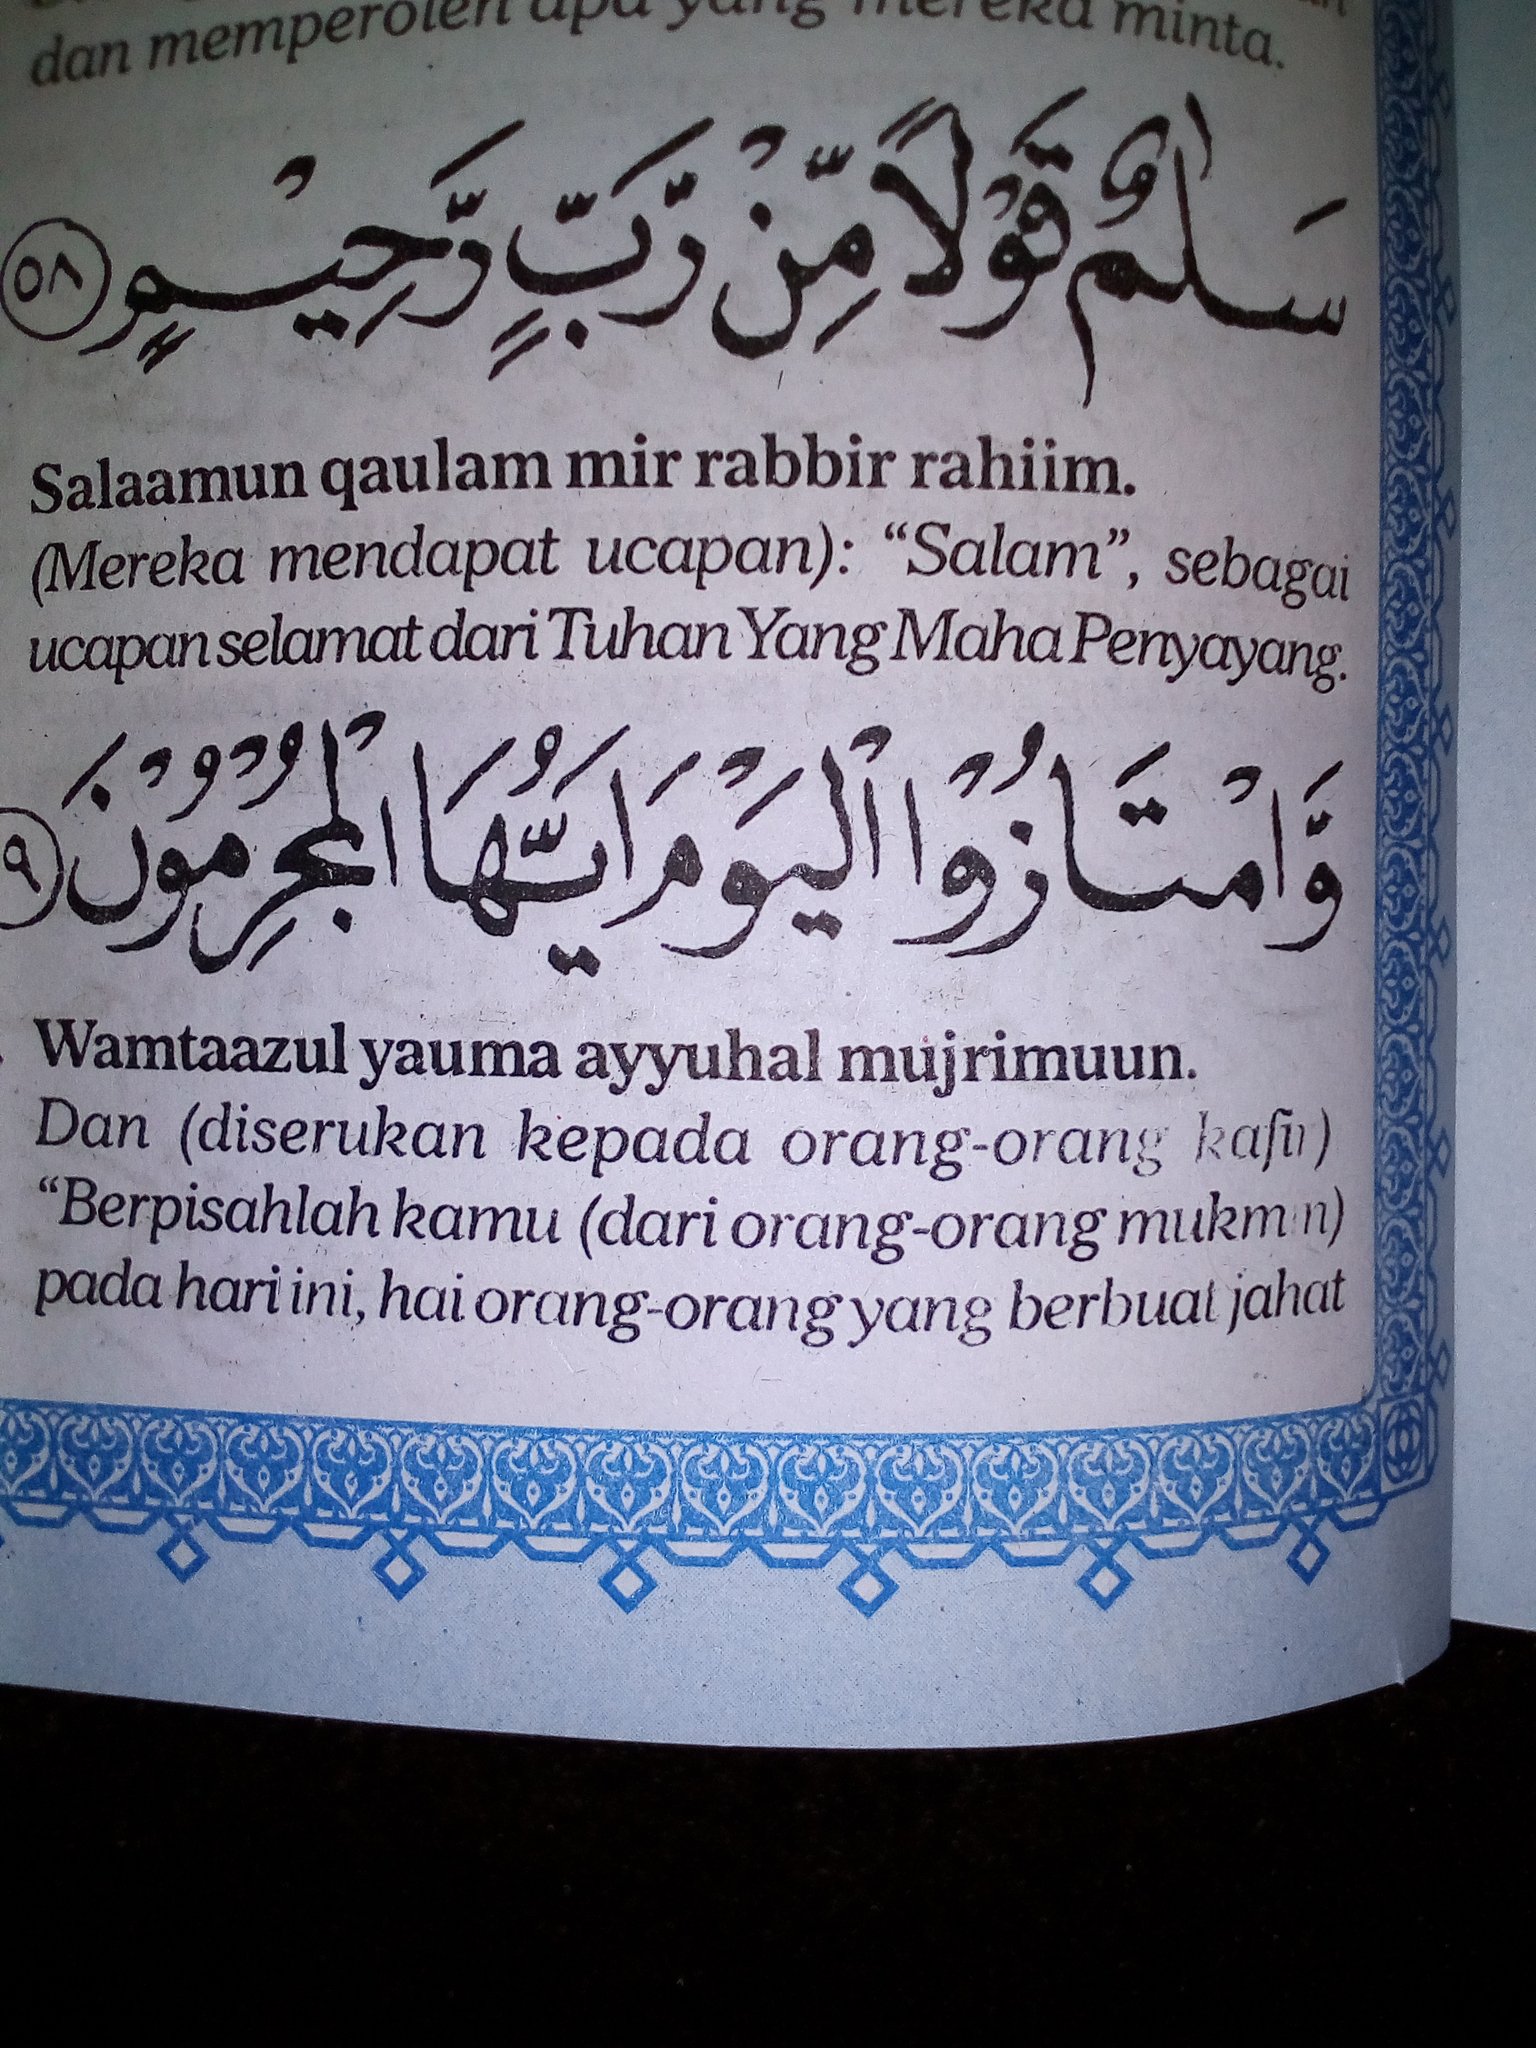 dan memperoleh apa yang mereka minta.
سَلٰمٌ قَوْلًا مِّنْ رَّبٍّ رَّحِيْمٍ ٥٨
Salaamun qaulam mir rabbir rahiim.
(Mereka mendapat ucapan): “Salam”, sebagai
ucapan selamat dari Tuhan Yang Maha Penyayang.
وَّامْتَازُوْا الْيَوْمَ اَيُّهَا الْمُجْرِمُوْنَ ٩
Wamtaazul yauma ayyuhal mujrimuun.
Dan (diserukan kepada orang-orang kafir)
“Berpisahlah kamu (dari orang-orang mukmin)
pada hari ini, hai orang-orang yang berbuat jahat